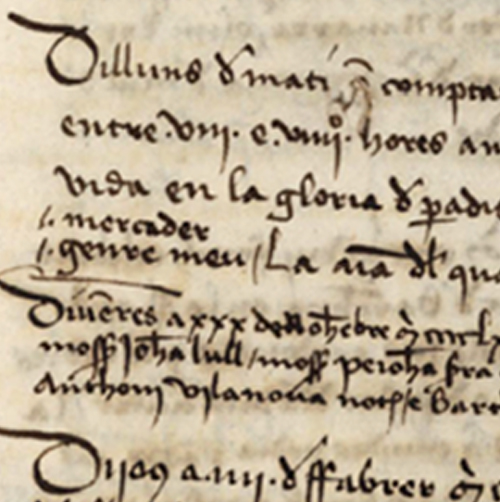 Dilluns d matí q̄ compta
entre.viij. e.viiijº. hores an
vida en la gloria d paradi
/. mercader
/. genre meu / La aīa dl qu
Divēres a xxx de nohēbre q̄ cccclx
moss Johā lull / moss perohā fra
Anthoni vilanova not e Barc
Dijos a.iiij. d ffabrer q̄